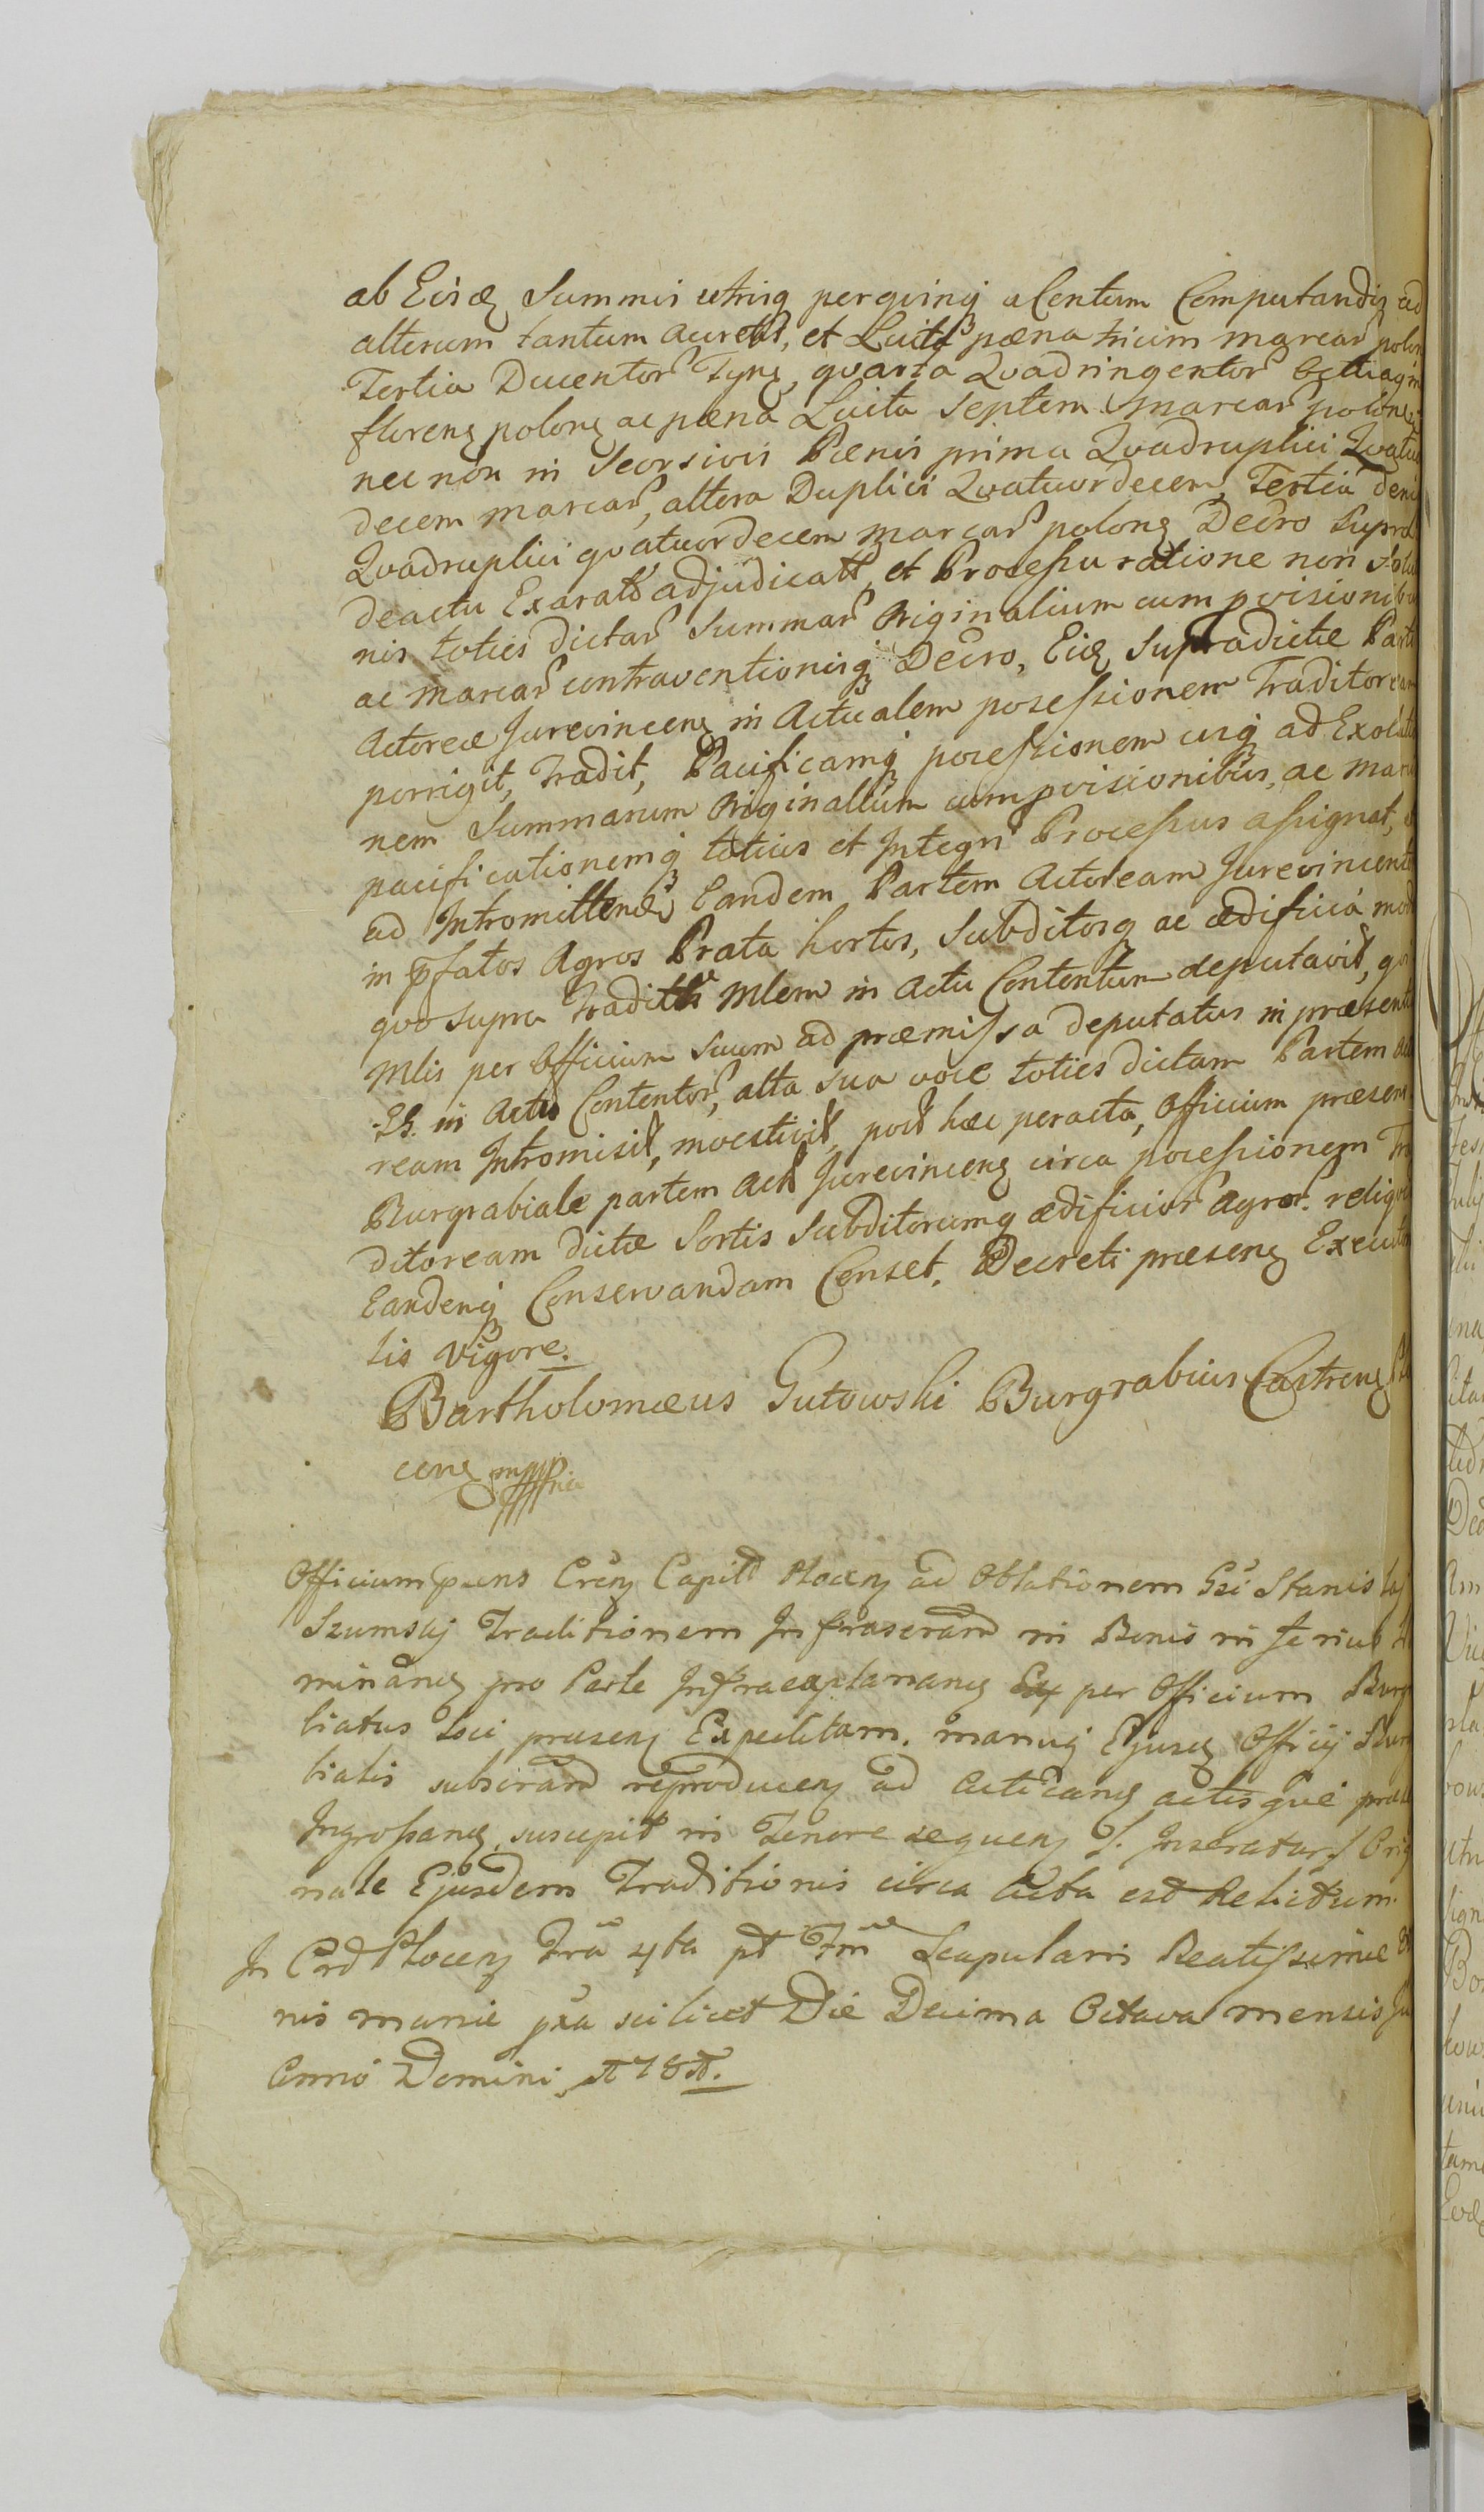 ab Eisdz Summis utrisq per qvinq a Centum Computandis ad
alterum tantum aucrett, et Luita pœna trium marcar polon
Tertia Ducentor Tynf, qvarta Qvadringentor Octuagin
florenz polonz ac pœna Luita Septem marcar polonz
nec non in Seorsivis Pœnis prima Qvadruplici Qvatuor
decem marcar, altera Duplici Qvatuordecem, Tertia deni
Qvadruplici qvatuordecem marcar polonz Decro Supra
de actu Exaratt adjudicatt, et Processu ratione non Solu
nis toties dictar Summar Originalium cum pvisionibus
ac marcar contraventionisq Decro, Eidz Supradictæ Parti
Actoreæ Jurevincenz in Actualem possessionem Traditoream
porrigit, Tradit, Pacificamq possessionem usq ad Exoluto
nem Summarum Originalium cum pvisionibus, ac marc
pacificationemq totius et Integri Processus assignat, et
ad Intromittend Eandem Partem Actoream Jurevincente
in pfatos Agros Prata hortos, Subditosq ac ædificia mod
qvo supra Traditt Mlem in Actu Contentum deputavit, qvi
Mlis per Officium Suum ad præmissa deputatus in præsenti
in Actu Contentor, alta sua voce toties dictam Partem Acto
ream Intromisit, post hæc peracta, Officium præsens
Burgrabiale partem Act Jurevincenz circa possessionem Tra
ditoream dictæ Sortis Subditorumq ædificior Agror. reliqvor
Eandemq Conservandam Censet, Decreti præsenz Executo
lis vigore.
Bartholomæus Gutowski Burgrabius Castrenz Plo
cenz mppria
Officium pœns Crenz Capitt Plocenz ad Oblationem Gsi Stanislai
Szumsky Traditionem Infrascram in Bonis inferius
minandz pro Parte Infraexplanandz per Officium Burg
biatus loci præsenz Expeditam, manuq Ejusdz Officij Burg
bialis subscram reproducenz ad Acticandz actisque præs
Ingrossandz suscepit in Tenore sequenz /. Inseratur ./ Orig
nale Ejusdem Traditionis circa Acta est Relictum.
In Cro Plocenz Fria 4ta pt Fm Scapularis Beatissimæ
nis mariæ pxa scilicet Die Decima Octava mensis Ju
Anno Domini